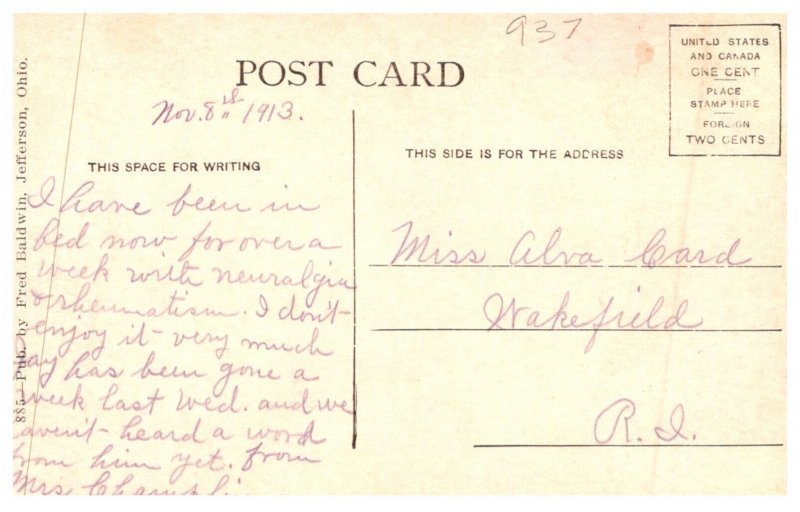 937
UNITED STATES
AND CANADA
ONE CENT
PLACE
STAMP HERE
FOREIGN
TWO CENTS
POST CARD
Nov. 8" 1913.
THIS SPACE FOR WRITING
THIS SIDE IS FOR THE ADDRESS
885—Pub. by Fred Baldwin, Jefferson, Ohio.
I have been in
bed now for over a
week with neuralgia
& rheumatism. I don't
enjoy it very much
Jay has been gone a
week last Wed. and we
aven't heard a word
from him yet. from
Mrs Champli
Miss Alva Card
Wakefield
R. I.